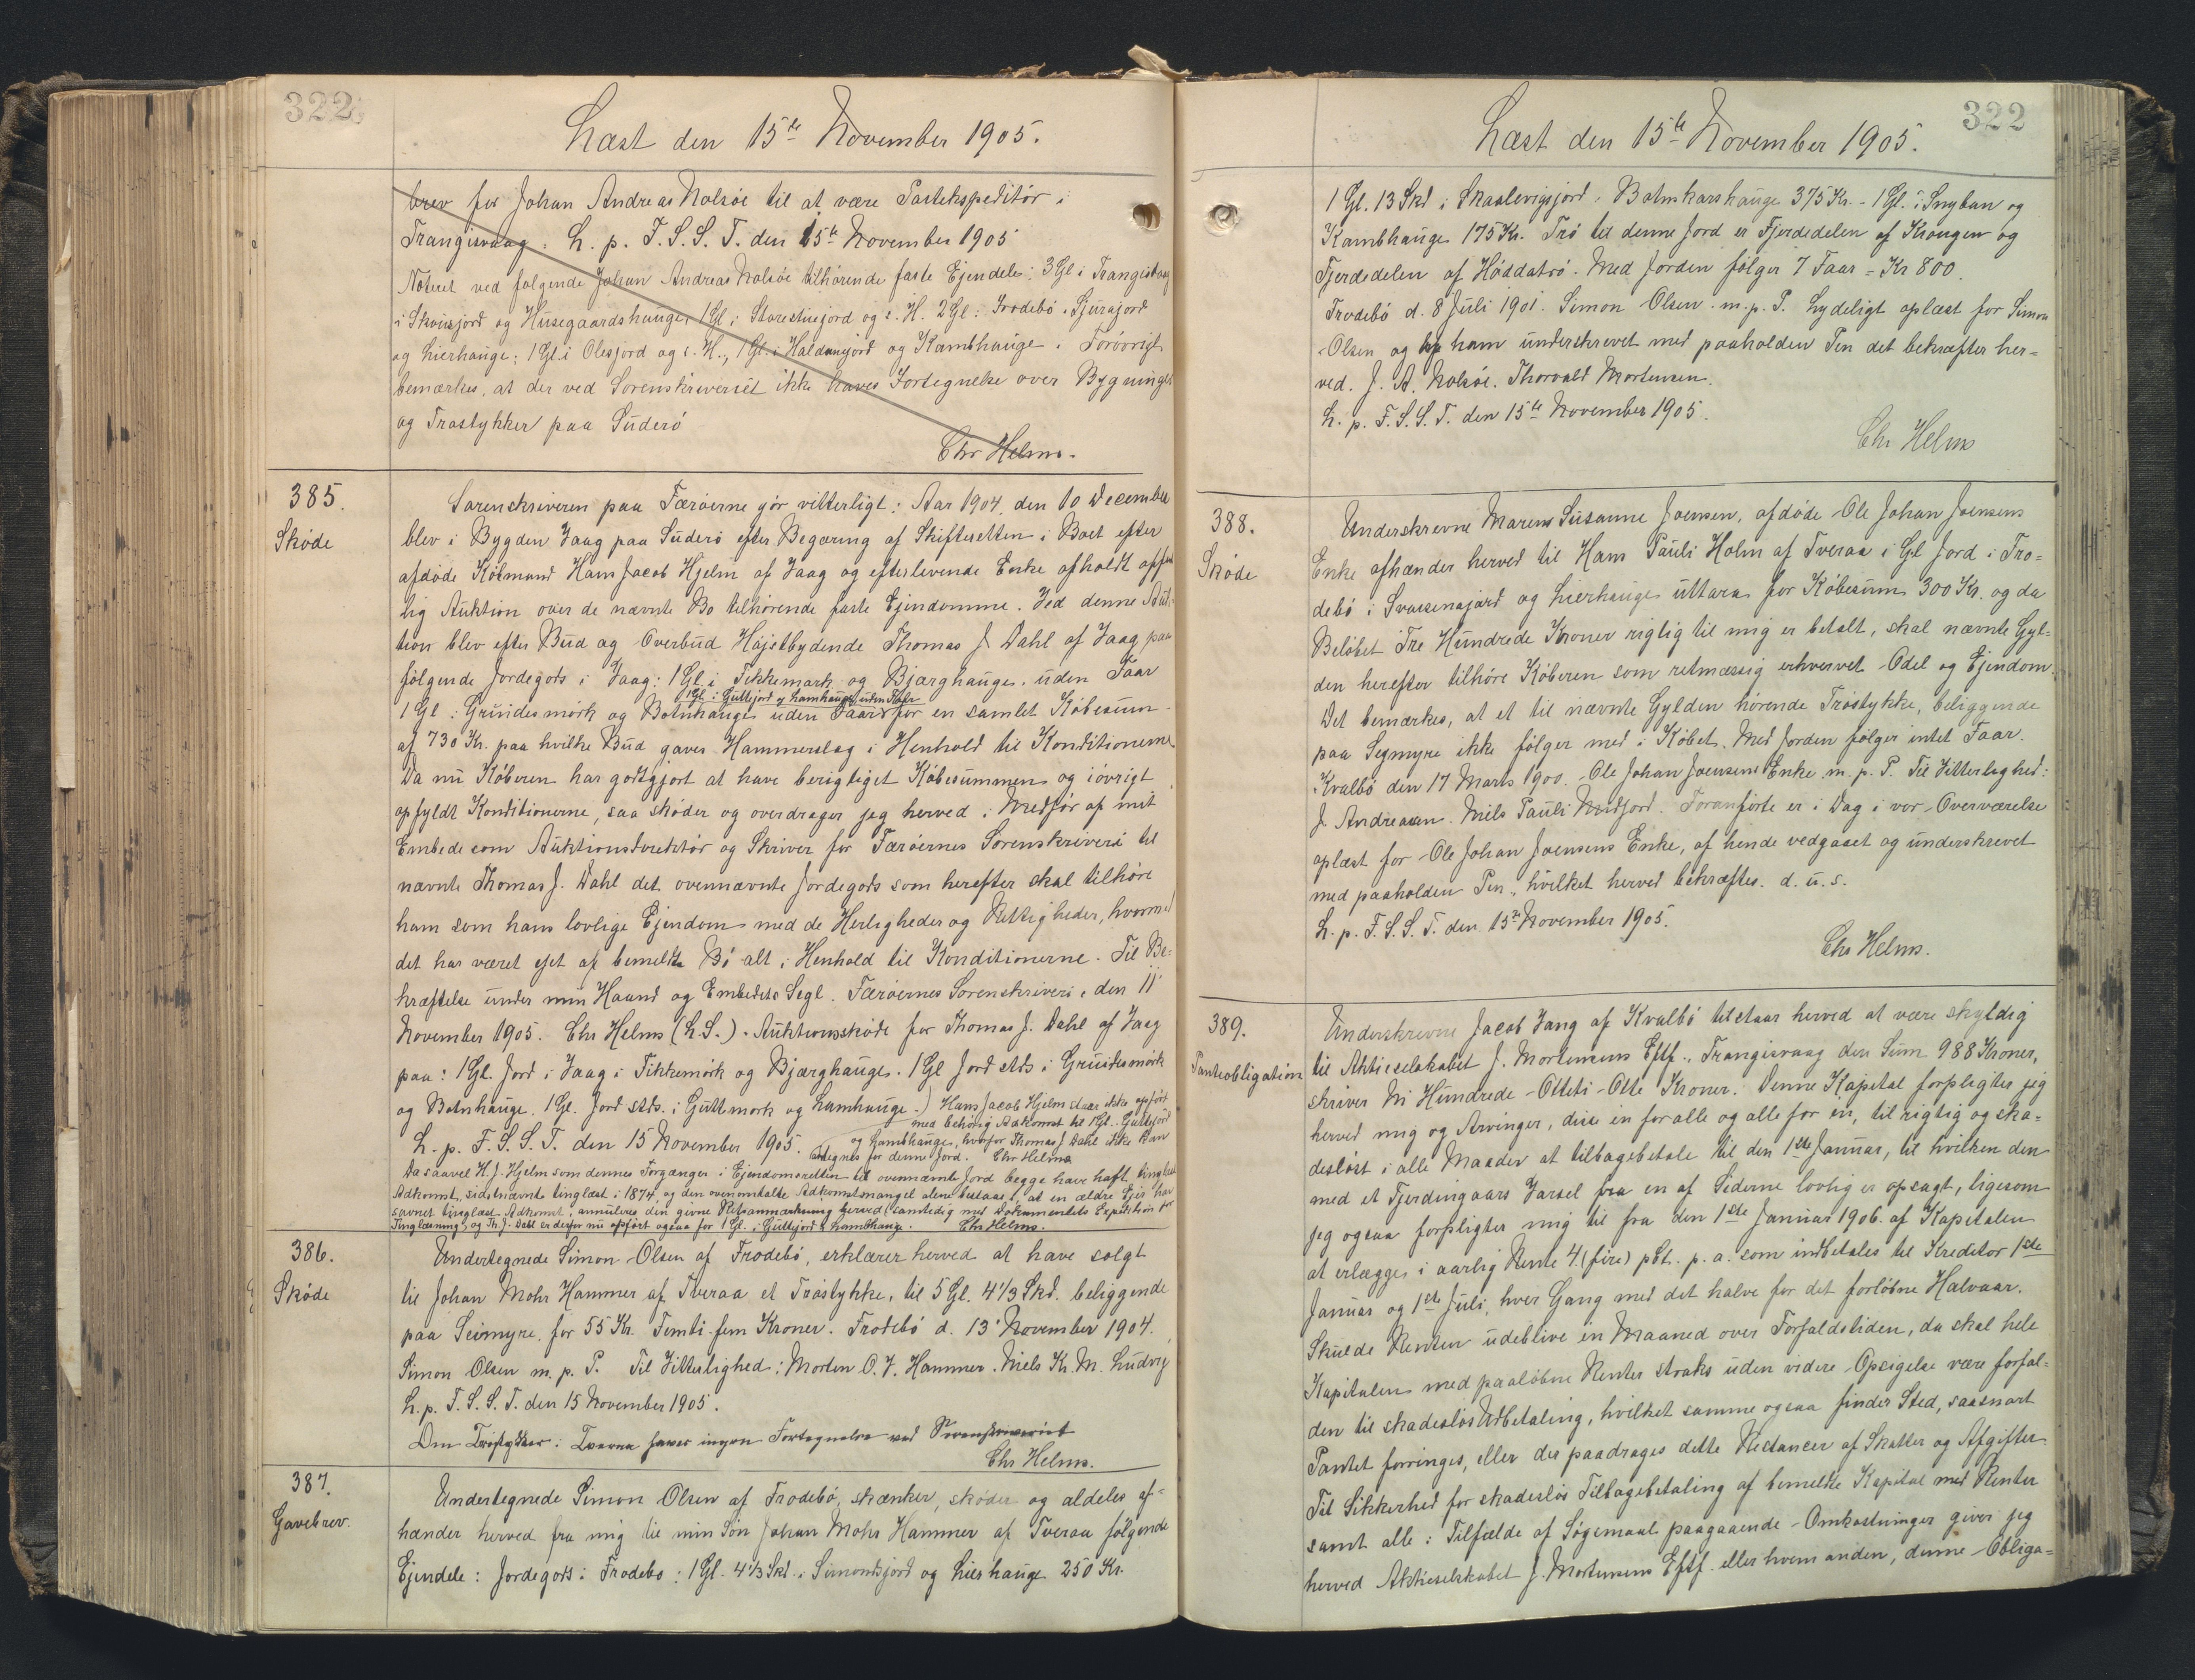 322
Læst den 15de November 1905.
brev for Johan Andreas Nolsöe til at være Postekspeditör i
Trangisvaag. L. p. F. S. S. T. den 15de November 1905
Noteret ved følgende Johan Andreas Nolsöe tilhörende faste Ejendele: 3 Gl i Trangisvaag
i Skousjord og Husegaardshauge, 1 Gl. i Storestuejord og s. H. 2 Gl. i Frodebö i Sjursjord
og Lierhauge; 1 Gl. i Olesjord og s. H., 1 Gl. i Haldansjord og Kambhauge. Forövrigt
bemærkes, at der ved Sorenskriveriet ikke haves Fortegnelse over Bygninger
og Tröstykker paa Suderö
Chr Helms.
385.
Sköde
Sorenskriveren paa Færöerne gör vitterligt: Aar 1904, den 10 December
blev i Bygden Vaag paa Suderö efter Begæring af Skifteretten i Boet efter
afdöde Köbmand Hans Jacob Hjelm af Vaag og efterlevende Enke afholdt offent
lig Auktion over de nævnte Bo tilhörende faste Ejendomme. Ved denne Auk-
tion blev efter Bud og Overbud Höjstbydende Thomas J. Dahl af Vaag paa
fölgende Jordegods i Vaag: 1 Gl. i Tikkemørk og Bjærghauge uden Faar
1 Gl. i Guttejord og Lamhauge uden Faar
1 Gl i Gruidesmörk og Botnhauge uden Faar for en samlet Köbesum
af 730 Kr. paa hvilke Bud gaves Hammerslag i Henhold til Konditionerne.
Da nu Köberen har godtgjort at have berigtiget Köbesummen og iövrigt
opfyldt Konditionerne, saa sköder og overdrager jeg herved i Medför af mit
Embede som Auktionsdirektör og Skriver for Færöernes Sorenskriveri til
nævnte Thomas J. Dahl det ovennævnte Jordegods som herefter skal tilhöre
ham som hans lovlige Ejendom med de Herligheder og Rettigheder, hvormed
det har været ejet af bemeldte Bö alt i Henhold til Konditionerne. Til Be-
kræftelse under min Haand og Embedets Segl. Færöernes Sorenskriveri, den 11'
November 1905. Chr Helms (L.S.). Auktionssköde for Thomas J. Dahl af Vaag
paa: 1 Gl. Jord i Vaag i Tikkemörk og Bjærghauge. 1 Gl Jord stds i Gruidesmörk
og Botnhauge. 1 Gl. Jord stds. i Guttmörk og Lamhauge.) Hans Jacob Hjelm staar ikke opfört
med behörig Adkomst til 1 Gl. i Guttejord
L. p. F. S. S. T. den 15 November 1905. og Lambhauge, hvorfor Thomas J. Dahl ikke kan
antegnes for denne Jord. Chr Helms
Da saavel H. J. Hjelm som dennes Forgænger i Ejendomsretten til ovennævnte Jord begge have haft tinglæst
Adkomst, sidstnævnte tinglæst i 1874, og den ovenomtalte Adkomstmangel alene bestaar i, at en ældre Ejer har
savnet tinglæst Adkomst, annulleres den givne Retsanmærkning herved samtidig med Dokumentets Expedition for
Tinglæsning, og Th. J. Dahl er derfor nu opført ogsaa for 1 Gl. i Guttejord & Lambhauge. Chr Helms.
386.
Sköde
Undertegnede Simon Olsen af Frodebö, erklærer herved at have solgt
til Johan Mohr Hammer af Tveraa et Tröstykke, til 5 Gl. 4 1/3 Skd. beliggende
paa Seimyre, for 55 Kr. Femti-fem Kroner. Frodebö d. 13' November 1904.
Simon Olsen m. p. P. Til Vitterlighed: Morten O. J. Hammer. Niels Kr. M. Ludvig
L. p. F. S. S. T. den 15 November 1905.
Om Tröstykker i Tveraa haves ingen Fortegnelse ved Sorenskriveriet
Chr Helms.
387.
Gavebrev.
Undertegnede Simon Olsen af Frodebö, skænker, sköder og aldeles af-
hænder herved fra mig til min Sön Johan Mohr Hammer af Tveraa fölgende
Ejendele: Jordegods i Frodebö: 1 Gl. 4 1/3 Skd. i Simonsjord og Lierhauge 250 Kr.
322
Læst den 15de November 1905.
1 Gl. 13 Skd i Skaalevigsjord i Botmkarshauge 375 Kr. - 1 Gl. i Snyban og
Kambhauge 175 Kr. Trö til denne Jord er Fjerdedelen af Krongen og
Fjerdedelen af Höddatrö. Med Jorden fölger 7 Faar = Kr 800.
Frodebö d. 8 Juli 1901. Simon Olsen m. p. P. Lydeligt oplæst for Simon
Olsen og af ham underskrevet med paaholden Pen det bekræfter her-
ved. J. A. Nolsöe. Thorvald Mortensen.
L. p. F. S. S. T. den 15de November 1905.
Chr Helms
388.
Sköde
Underskrevne Maren Susanne Joensen, afdöde Ole Johan Joensens
Enke afhænder herved til Hans Pauli Holm af Tveraa i Gl Jord i Fro-
debö i Svaesenajord og Lierhauge uttara for Köbesum 300 Kr. og da
Belöbet Tre Hundrede Kroner rigtig til mig er betalt, skal nævnte Gyl-
den herefter tilhöre Köberen som retmæssig erhvervet Odel og Ejendom.
Det bemærkes, at et til nævnte Gylden hörende Tröstykke, beliggende
paa Segmyre ikke fölger med i Köbet. Med Jorden fölger intet Faar.
Kvalbö den 17 Marts 1900. Ole Johan Joensens Enke m. p. P. Til Vitterlighed:
J. Andreasen. Niels Pauli Midfjord. Foranförte er i Dag i vor Overværelse
oplæst for Ole Johan Joensens Enke, af hende vedgaaet og underskrevet
med paaholden Pen, hvilket herved bekræftes. d. u. s.
L. p. F. S. S. T. den 15de November 1905.
Chr Helms.
389.
Panteobligation
Underskrevne Jacob Vang af Kvalbö tilstaar herved at være skyldig
til Aktieselskabet J. Mortensens Eftf., Trangisvaag den Sum 988 Kroner,
skriver Ni Hundrede Otteti-Otte Kroner. Denne Kapital forpligter jeg
herved mig og Arvinger, disse en for alle og alle for en, til rigtig og ska-
deslöst i alle Maader at tilbagebetale til den 1ste Januar, til hvilken den
med et Fjerdingaars Varsel fra en af Siderne lovlig er opsagt, ligesom
jeg ogsaa forpligter mig til fra den 1ste Januar 1906 af Kapitalen
at erlægge i aarlig Rente 4 (fire) pCt. p. a. som indbetales til Kreditor 1ste
Januar og 1ste Juli, hver Gang med det halve for det forlöbne Halvaar.
Skulde Renten udeblive en Maaned over Forfaldstiden, da skal hele
Kapitalen med paalöbne Renter straks uden videre Opsigelse være forfal-
den til skadeslös Udbetaling, hvilket samme ogsaa finder Sted, saasnart
Pantet forringes, eller der paadrages dette Restancer af Skatter og Afgifter.
Til Sikkerhed for skadeslös Tilbagebetaling af bemeldte Kapital med Renter
samt alle i Tilfælde af Sögsmaal paagaaende Omkostninger giver jeg
herved Aktieselskabet J. Mortensens Eftf. eller hvem anden, denne Obliga-